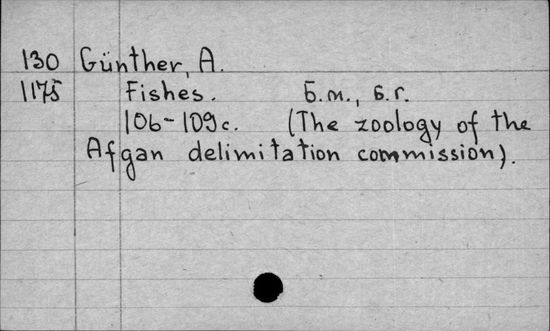 130 Günther, A.
1175 Fishes. Б.м., б.г.
106-109с. (The zoology of the
Afgan delimitation commission).